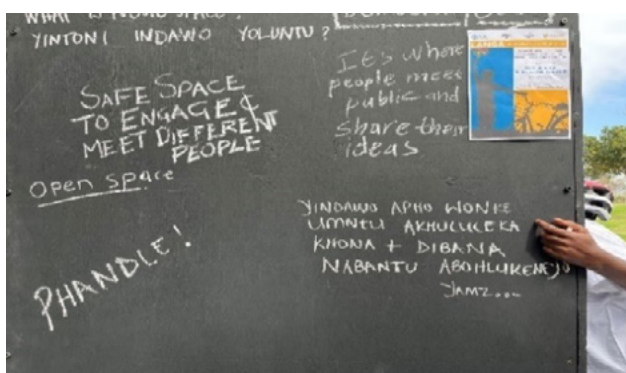 WHAT IS PUBLIC SPACE?
YINTONI INDAWO YOLUNTU?
SAFE SPACE
TO ENGAGE &
MEET DIFFERENT
PEOPLE
Open space
PHANDLE!
It's where
people meet
public and
share their
ideas
LANGA
YINDAWO APHO WONKE
UMNTU AKHULULEKA
KHONA + DIBANA
NABANTU ABOHLUKENEYO
JAMZ...